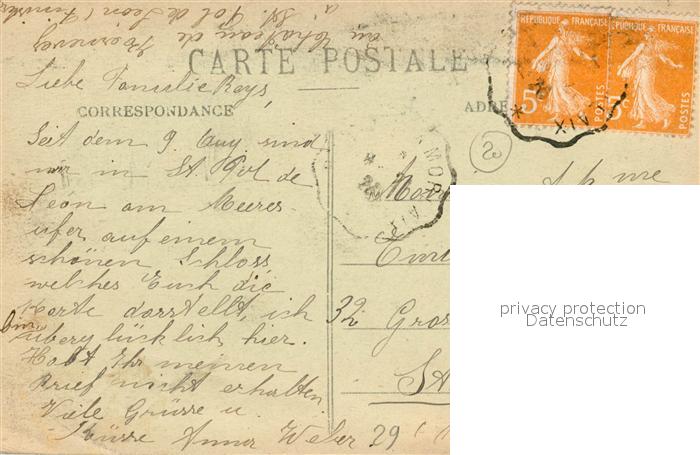 au Château de Kernevez
à St. Pol de Léon (Finistère
CARTE POSTALE
RÉPUBLIQUE FRANÇAISE
RÉPUBLIQUE FRANÇAISE
5c POSTES
5c POSTES
CORRESPONDANCE
ADRE
20
Liebe Familie Rays,
Seit dem 9. Aug. sind
wir in St. Pol de
Leon am Meeres-
ufer auf einem
schönen Schloss
welches Euch die
Karte darstellt, ich
bin überglücklich hier.
Habt Ihr meinen
Brief nicht erhalten
Viele Grüsse u.
Küsse Anna Weber
MOR AIX
AIX
me
32 Gros
St
29
privacy protection
Datenschutz